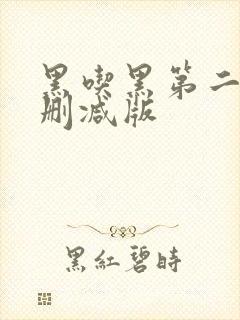 黑喫黑第二
删减版
黑紅碧時